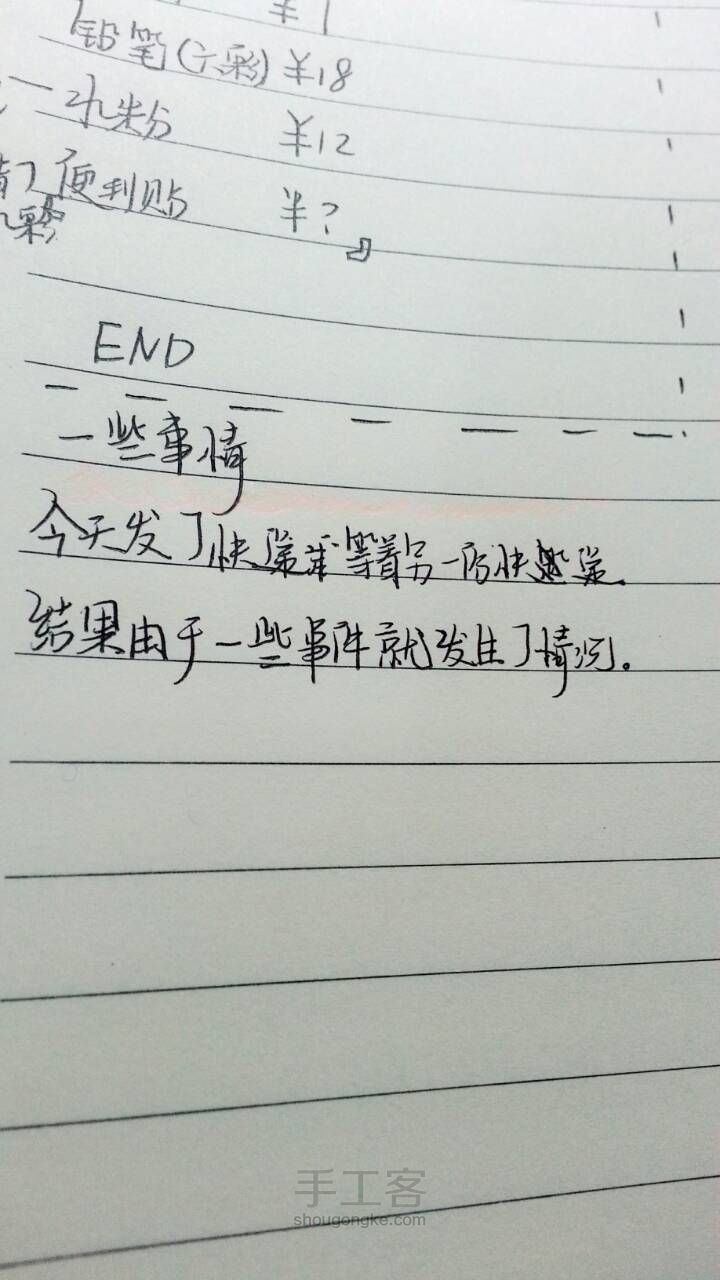 ¥1
铅笔(六彩) ¥18
一水粉 ¥12
便利贴 ¥?
彩
END
一些事情
今天发了快递 等着另一份快递。
结果由于一些事件就发生了情况。
手工客
shougongke.com